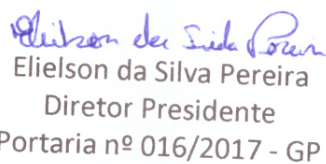 Elielson da Silva Pereira
Elielson da Silva Pereira
Diretor Presidente
Portaria nº 016/2017 - GP